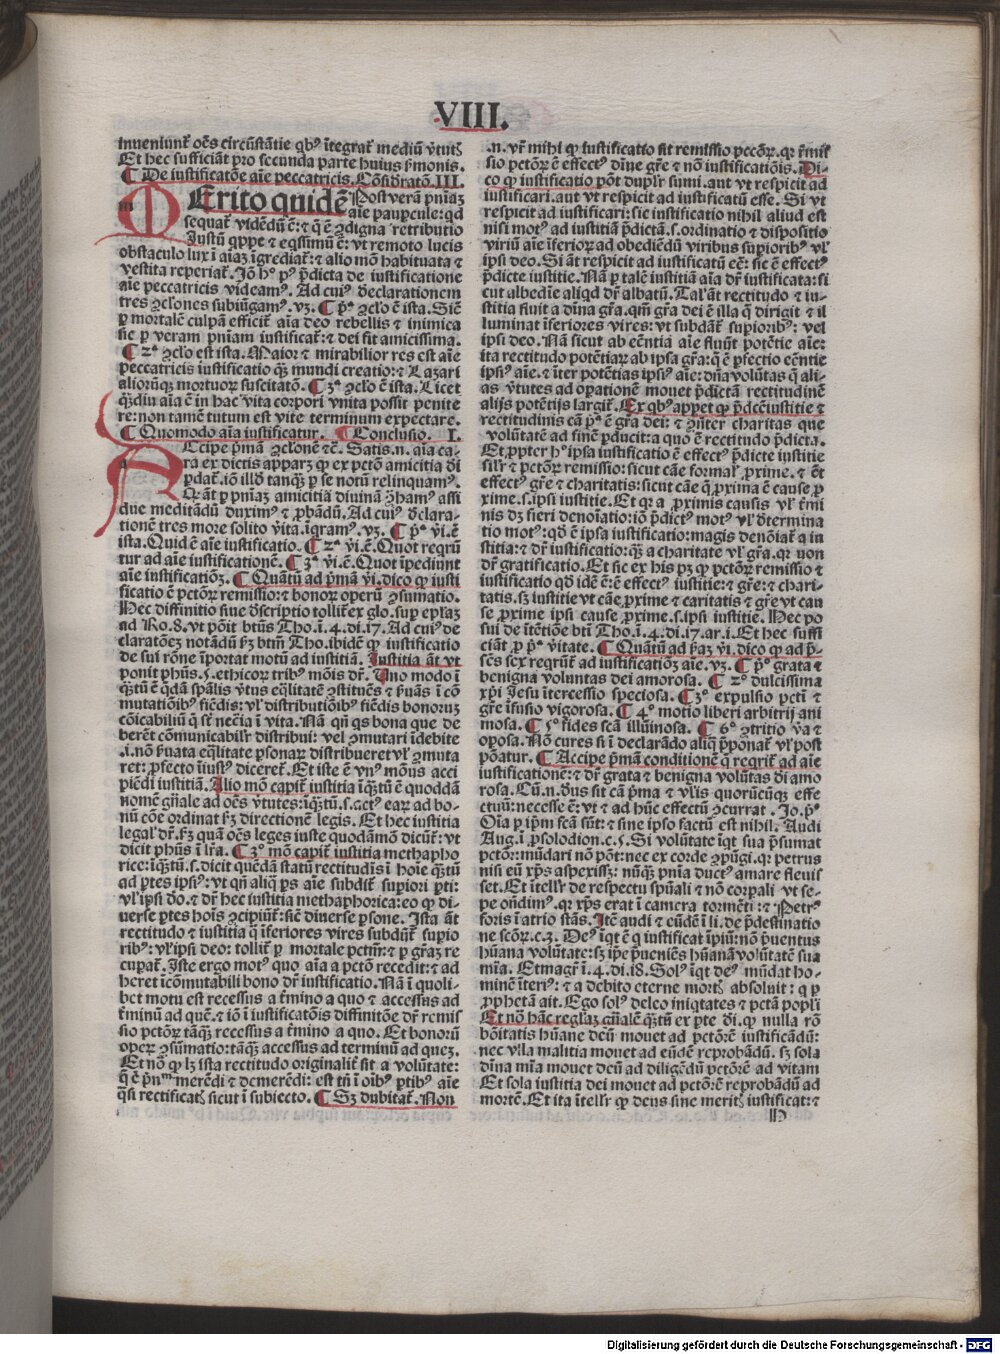 VIII.
inueniunt᷒ oēs circūstātie qbꝰ ītegrat᷒ mediū v̄tutꝭ
Et hec sufficiāt pro secunda parte huius ẜmonis.
¶ De iustificatōe aīe peccatricis. Cōsid̓ratō. III.
MErito quidē Post verā pn̄iaꝫ
aīe paupcule: qd
sequat᷒ vidēdū ē: ⁊ q̄ ē ꝯdigna retributio
Iustū qppe ⁊ eqssimū ē: vt remoto lucis
obstaculo lux ī aīaꝫ īgrediat᷒: ⁊ alio mō habituata ⁊
vestita reperiat᷒. Iō hº pº p̄dicta de iustificatione
aīe peccatricis videamꝰ. Ad cuiꝰ declarationem
tres ꝯclōnes subiūgamꝰ. vꝫ. ¶ pᵃ ꝯclō ē ista. Sic̄
ꝑ mortalē culpā efficit᷒ aīa deo rebellis ⁊ inimica
sic ꝑ veram pniam iustificat᷒: ⁊ dei fit amicissima.
¶ 2ᵃ ꝯclō est ista. Maior ⁊ mirabilior res est aīe
peccatricis iustificatio qꝫ mundi creatio: ⁊ Lazari
aliorūqꝫ mortuoꝝ suscitatō. ¶ 3ᵃ ꝯclō ē ista. Licet
qꝫdiu aīa ē in hac vita corpori vnita possit penite
re: non tamē tutum est vite terminum expectare.
¶ Quomodo aīa iustificatur. ¶ Conclusio. I.
ACcipe p̄mā ꝯclonē ⁊c̄. Satis .n. aīa ca-
ra ex dictis apparꝫ qp ex pctō amicitia dī
ꝑdat᷒. iō illd tanqꝫ ꝑ se notū relinquamꝰ.
Qr̄ āt ꝑ pniaꝫ amicitiā diuinā ꝯhamꝰ assi
due meditādū duximꝰ ⁊ ꝓbādū. Ad cuiꝰ dclara-
tionē tres more solito v̄ita. īqramꝰ. vꝫ. ¶ pᵃ v̄i. ē
ista. Quid ē aīe iustificatio. ¶ 2ᵃ v̄i. ē. Quot reqrū
tur ad aīe iustificationē. ¶ 3ᵃ v̄i. ē. Quot īpediunt
aīe iustificatiōꝫ. ¶ Quātū ad p̄mā v̄i. dico qp iusti
ficatio ē pctōꝝ remissio: ⁊ bonoꝝ operū ꝯsumatio.
Hec diffinitio siue dscriptio tollit᷒ ex glo. suꝑ epl̄aꝫ
ad Ro. 8. vt pōit btūs Tho. ī. 4. di. 17. Ad cuiꝰ de
claratōeꝫ notādū ẜꝫ btm̄ Tho. ibidē qp iustificatio
de sui rōne īportat motū ad iustitiā. Iustitia āt vt
ponit phūs. 5. ethicoꝝ tribꝰ mōis dr̄. Vno modo ī
qꝫtū ē qdā sp̄alis v̄tus eqlitatē ꝯstituēs ⁊ ẜuās ī cō
mutatiōibꝰ fiēdis: vl̓ distributiōibꝰ fiēdis bonoruꝫ
cōicabiliū q̄ st̄ nec̄ia ī vita. Nā qn̄ qs bona que de
berēt cōmunicabil̓r distribui: vel ꝯmutari īdebite
.i. nō ẜuata eqlitate ꝑsonaꝝ distribueret vl̓ ꝯmuta
ret: ꝓfecto īiustꝰ diceret᷒. Et iste ē vnꝰ mōus acci
piēdi iustitiā. Alio mō capit᷒ iustitia īqꝫtū ē quoddā
nomē gn̄ale ad oēs v̄tutes: īqꝫtū .s. actꝰ eaꝝ ad bo-
nū cōe ordinat ẜꝫ directionē legis. Et hec iustitia
legal̓ dr̄. ẜꝫ quā oēs leges iuste quodāmō dicūt᷒: vt
dicit phūs ī lr̄a. ¶ 3º mō capit᷒ iustitia methapho
rice: īqꝫtū .s. dicit quēdā statū rectitudis ī hoīe qꝫtū
ad ꝑtes ipsiꝰ: vt qn̄ aliq ps aīe subdit᷒ supiori ꝑti:
vl̓ ipsi dō. ⁊ dr̄ hec iustitia methaphorica: eo qp di-
uerse ꝑtes hoīs ꝯcipiūt᷒: sic̄ diuerse ꝑsone. Ista āt
rectitudo ⁊ iustitia q̄ īferiores vires subdūt᷒ supio
ribꝰ: vl̓ ipsi deo: tollit᷒ ꝑ mortale pctm̄: ⁊ ꝑ gr̄aꝫ re
cuꝑat᷒. Iste ergo motꝰ quo aīa a pctō recedit: ⁊ ad
heret īcōmutabili bono dr̄ iustificatio. Nā ī quoli-
bet motu est recessus a t̄mino a quo ⁊ accessus ad
t̄minū ad quē. ⁊ iō ī iustificatōis diffinitōe dr̄ remis
sio pctōꝝ tāqꝫ recessus a t̄mino a quo. Et bonorū
opeꝝ ꝯsūmatio: tāqꝫ accessus ad terminū ad queꝫ.
Et nō qp lꝫ ista rectitudo originalit᷒ sit a volūtate:
q̄ ē p̄nᵐ merēdi ⁊ demerēdi: est tn̄ ī oībꝰ ꝑtibꝰ aīe
q̄ si rectificatꝭ sicut ī subiecto. ¶ Sꝫ dubitat᷒. Non
.n. vr̄ mihi qp iustificatio sit remissio pccōꝝ. qꝛ r̄mis
sio pctōꝝ ē effectꝰ diuīe gr̄e ⁊ nō iustificatiōis. Di-
co qp iustificatio pōt dupl̓r sumi. aut vt respicit ad
iustificari. aut vt respicit ad iustificatū esse. Si vt
respicit ad iustificari: sic iustificatio nihil aliud est
nisi motꝰ ad iustitiā p̄dictā .s. ordinatio ⁊ dispositio
viriū aīe īferioꝝ ad obediēdū viribus supioribꝰ vl̓
ipsi deo. Si āt respicit ad iustificatū eē: sic ē effectꝰ
p̄dicte iustitie. Nā ꝑ talē iustitiā aīa dr̄ iustificata: si
cut albedīe aliqd dr̄ albatū. Tal̓ āt rectitudo ⁊ iu-
stitia fiut a diīna gr̄a. qm̄ gr̄a dei ē illa q̄ dirigit ⁊ il
luminat īferiores vires: vt subdāt᷒ supioribꝰ: vel
ipsi deo. Nā sicut ab eēntia aīe fluūt potētie aīe:
ita rectitudo potētiaꝝ ab ipsa gr̄a: q̄ ē ꝑfectio eēntie
ipsiꝰ aīe. ⁊ īter potētias ipsiꝰ aīe: dn̄a volūtas q̄ ali-
as v̄tutes ad oꝑationē mouet p̄dictā rectitudinē
alijs potētijs largit᷒. Ex qbꝰ appet qp p̄dcē iustitie ⁊
rectitudinis cā pᵃ ē gr̄a dei: ⁊ ꝯn̄ter charitas que
volūtatē ad finē ꝑducit: a quo ē rectitudo p̄dicta.
Et ꝓpter hº ipsa iustificatio ē effectꝰ p̄dicte iustitie
sil̓r ⁊ pctōꝝ remissio: sicut cāe formal̓ ꝓxime. ⁊ ēt
effectꝰ gr̄e ⁊ charitatis: sicut cāe q̄ ꝓxima ē cause ꝓ
xime .s. ipsi iustitie. Et qꝛ a ꝓximis causis vl̓ t̄mi
nis dꝫ fieri denoīatio: iō p̄dictꝰ motꝰ vl̓ dtermina
tio motꝰ: qd ē ipsa iustificatio: magis denoīat᷒ a iu
stitia: ⁊ dr̄ iustificatio: qꝫ a charitate vl̓ gr̄a. qꝛ non
dr̄ gratificatio. Et sic ex his pꝫ qp pctōꝝ remissio ⁊
iustificatio qd idē ē: ē effectꝰ iustitie: ⁊ gr̄e: ⁊ chari-
tatis. sꝫ iustitie vt cāe ꝓxime ⁊ caritatis ⁊ gr̄e vt cau
se ꝓxime ipsi cause ꝓxime .s. ipsi iustitie. Hec po
sui de ītētiōe bti Tho. ī. 4. di. 17. ar. i. Et hec suffi
ciāt ꝓ pᵃ v̄itate. ¶ Quātū ad p̄aꝫ v̄i. dico qp ad p̄-
sēs sex reqrūt᷒ ad iustificatiōꝫ aīe. vꝫ. ¶ pº grata ⁊
benigna voluntas dei amorosa. ¶ 2º dulcissima
xp̄i Iesu ītercessio speciosa. ¶ 3º expulsio pcti ⁊
gr̄e īfusio vigorosa. ¶ 4º motio liberi arbitrij ani
mosa. ¶ 5º fides scā illuīnosa. ¶ 6º ꝯtritio v̄a ⁊
oꝑosa. Nō cures si ī declarādo aliq p̄ponāt᷒ vl̓ post
pōatur. ¶ Accipe p̄mā conditionē q̄ reqrit᷒ ad aīe
iustificatione: ⁊ dr̄ grata ⁊ benigna volūtas di amo
rosa. Cū .n. dus sit cā p̄ma ⁊ vl̓is quorūcūqꝫ effe
ctuū: necesse ē: vt ⁊ ad hūc effectū ꝯcurrat. Io. pº
Oīa ꝑ ipm̄ scā sūt: ⁊ sine ipso factū est nihil. Audi
Aug. ī ꝓsolodion. c. 5. Si volūtate īqt sua p̄sumat
pctōꝝ: mūdari nō pōt: nec ex corde ꝯpūgi. qꝛ petrus
nisi eū xp̄s aspexissꝫ: nūqꝫ pnīa ductꝰ amare fleuis
set. Et ītell̓r de respectu spūali ⁊ nō corpali vt se-
pe on̄dimꝰ. qꝛ xp̄s erat ī camera tormēti: ⁊ Petrꝰ
foris ī atrio stās. Itē audi ⁊ eūdē ī li. de p̄destinatio
ne scōꝝ. c. 3. Deꝰ īqt ē q iustificat īpiū: nō p̄uentus
hūana volūtate: sꝫ ipe p̄ueniēs hūanā volūtatē sua
mīa. Et magr̄ ī. 4. di. 18. Solꝰ īqt deꝰ mūdat ho-
minē īteriꝰ: ⁊ a debito eterne mortꝭ absoluit: q ꝑ
ꝓphetā ait. Ego solꝰ deleo iniqtates ⁊ pctā popl̓i
Et nō hāc regl̓aꝫ gn̄alē qꝫtū ex ꝑte di. qp nulla rō
bōitatis hūane deū mouet ad pctōrē iustificādū:
nec vlla malitia mouet ad eūdē reprobādū. sꝫ sola
diīna mīa mouet deū ad diligēdū pctōrē ad vitam
Et sola iustitia dei mouet ad pctōrē reprobādū ad
mortē. Et ita ītell̓r qp deus sine meritꝭ iustificat: ⁊
Digitalisierung gefördert durch die Deutsche Forschungsgemeinschaft - DFG